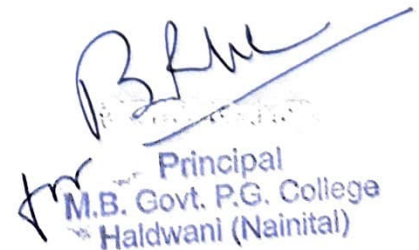 for
Principal
M.B. Govt. P.G. College
Haldwani (Nainital)